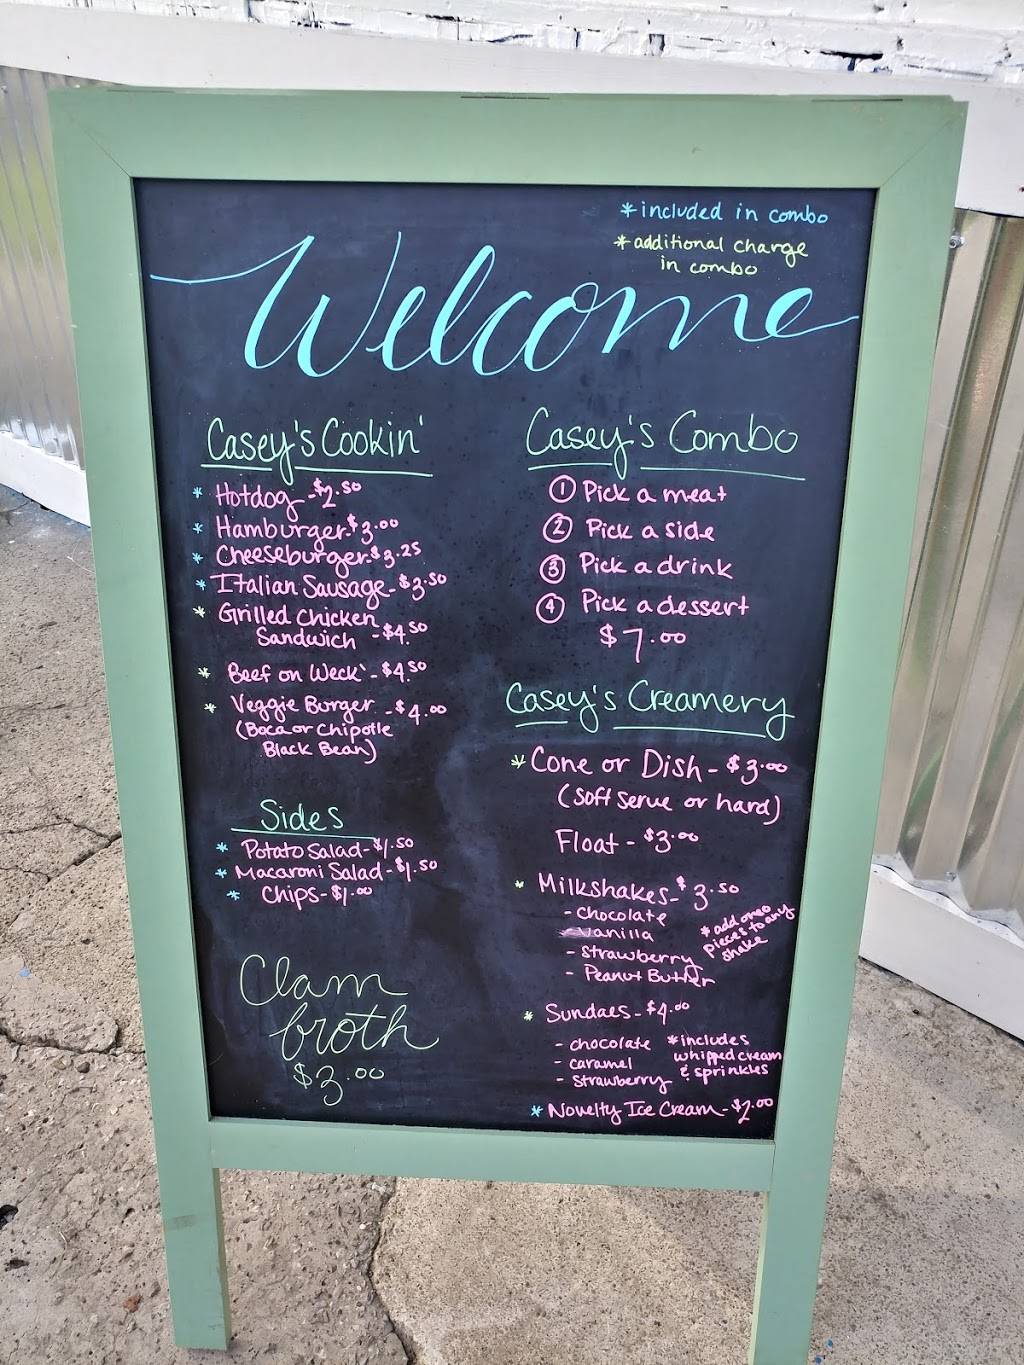 *included in combo
*additional charge
in combo
Welcome
Casey's Cookin'
* Hotdog - $2.50
* Hamburger - $3.00
* Cheeseburger - $3.25
* Italian Sausage - $3.50
* Grilled Chicken
Sandwich - $4.50
* Beef on Weck` - $4.50
* Veggie Burger - $4.00
(Boca or Chipotle
Black Bean)
Sides
* Potato Salad - $1.50
* Macaroni Salad - $1.50
* Chips - $1.00
Clam
broth
$3.00
Casey's Combo
1 Pick a meat
2 Pick a side
3 Pick a drink
4 Pick a dessert
$7.00
Casey's Creamery
* Cone or Dish - $3.00
(soft serve or hard)
Float - $3.00
* Milkshakes - $3.50
- chocolate
- vanilla
- strawberry
- Peanut Butter
* add oreo
pieces to any
shake
* Sundaes - $4.00
- chocolate
- caramel
- strawberry
*includes
whipped cream
& sprinkles
* Novelty Ice Cream - $2.00